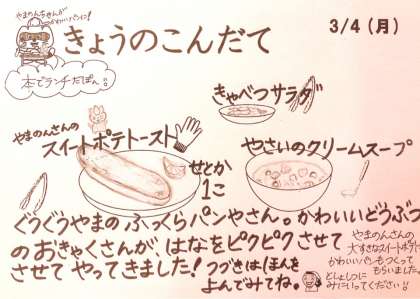 やまのんちゃんが
かわいいパンに!
きょうのこんだて
3/4(月)
本でランチだぽん。
きゃべつサラダ
やまのんさんの
スイートポテトースト
せとか
1こ
やさいのクリームスープ
ぐうぐうやまの ふっくらパンやさん。かわいいどうぶつ
のおきゃくさんが、はなをピクピクさせて
させて やってきました! つづきはほんを
よんでみてね。
やまのんさんの
大すきなスイートポテト
かわいいパンもつくって
もらいました。
としょしつに
みにいってください